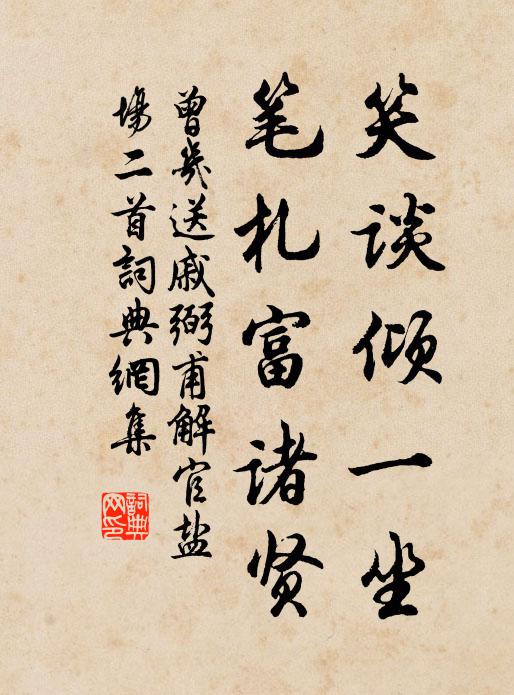 笑谈倾一坐
笔札富诸贤
曾几送戚弼甫解官盐
場二首詞典網集
詞典网印